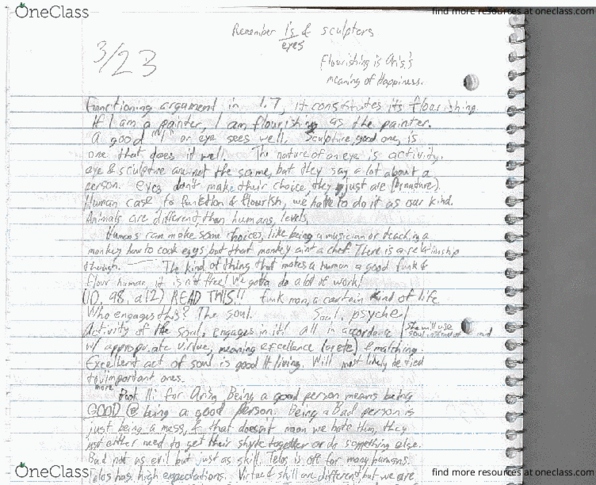 OneClass
find more resources at oneclass.com
3/23
Remember 1's & sculptors
eyes
Flourishing is Aris's
meaning of Happiness.
Functioning argument in 1.7, it constitutes its flourishing.
If I am a painter, I am flourishing as the painter.
A good eye sees well. Sculpture, good one, is
one that does it well. The nature of an eye is activity.
eye & sculpture are not the same, but they say a lot about a
person. eyes don't make their choice, they just are (
Human case to function & flourish, we have to do it as our kind.
Animals are different than humans, levels
Humans can make some choices, like being a musician or teaching a
monkey how to cook eggs but that monkey aint a chef. There is a relationship
though. The kind of thing that makes a human a good funk &
flour human, it is not free! We gotta do a lot of work!
(1D, 98, a12) READ THIS!! funk man, a certain kind of life.
Who engages this? The soul. Soul, psyche
Activity of the soul, engages in it! all in accordance
w/ appropriate virtue, meaning excellence (arete)
Excellent act of soul is good lt living. Will most likely be tied
to more important ones.
for Aris, Being a good person means being
GOOD @ being a good person. Being a Bad person is
just being a mess, & that doesn't mean we hate them, they
just either need to get their shyte together or do something else.
Bad not as evil but just as skill. Telos is off for many humans.
Telos has high expectations. Virtue & skill are different but we are
OneClass
find more resources at oneclass.com